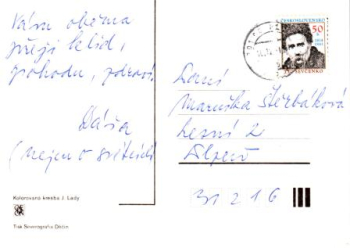 Vám oběma
přeji klid,
pohodu, zdraví.
Dáša
(nejen o svátcích)
Kolorovaná kresba J. Lady
Tisk Severografia Děčín
ČESKOSLOVENSKO
50
ŠEVČENKO
Paní
Maruška Štěrbáková
Lesní 2
312 16